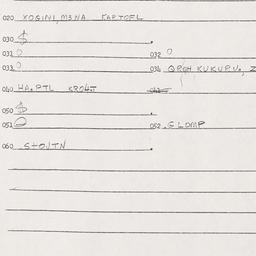 020 XOGINI, M3NA KARTOFL
030 $
031 0 032 0
033 0 034 QROH KUKURU, Z
040 HA.PTL
050 $
051 052 GLOMP
060 STOJTN